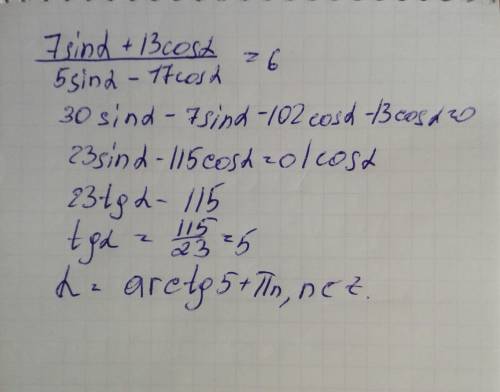 7sinα + 13cosα / 5sinα - 17cosα = 6
30sinα - 7sinα - 102cosα - 13cosα = 0
23sinα - 115cosα = 0 / cosα
23tgα - 115
tgα = 115/23 = 5
α = arctg5 + πn, n ∈ z.